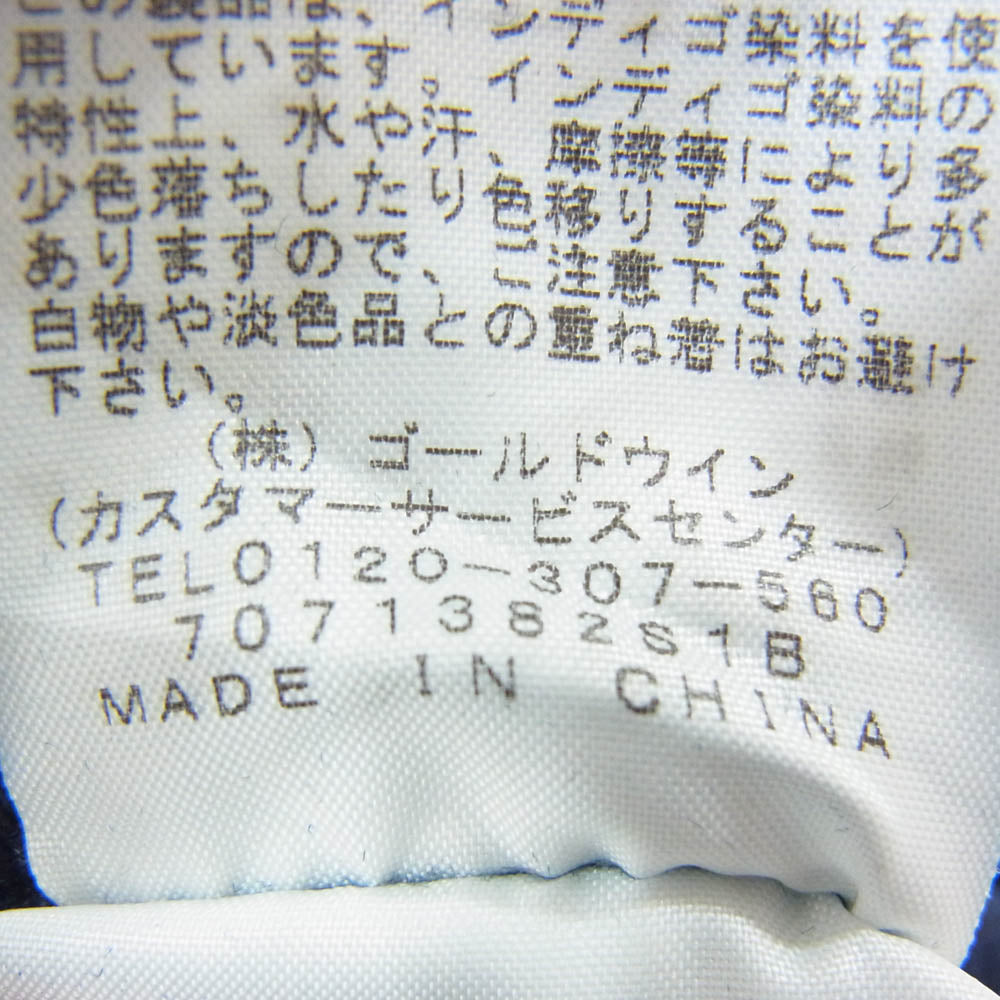 この製品は、インディゴ染料を使
用しています。インディゴ染料の
特性上、水や汗、摩擦等により多
少色落ちしたり、色移りすることが
あります。ので、ご注意下さい。
白物や淡色品との重ね着はお避け
下さい。
(株) ゴールドウイン
(カスタマーサービスセンター)
TEL0120-307-560
7071382S1B
MADE IN CHINA